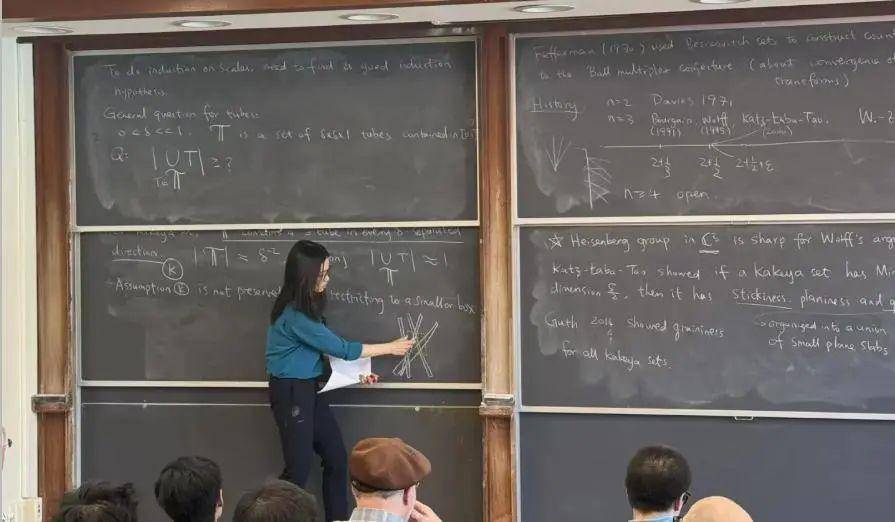 To do induction on scales, need to find a good induction
hypothesis.
General question for tubes:
0 < δ << 1. 𝕋 is a set of δxδx1 tubes contained in
Q: | ∪ T | ≥ ?
T∈𝕋
𝕋 contains a δ-tube in every δ-separated
direction. |𝕋| ≈ δ⁻² | ∪ T | ≈ 1
(K) 𝕋
Assumption (K) is not restricting to a smaller box
Fefferman (1970) used Besicovitch sets to construct
to the Ball multiplier conjecture (about convergence of
transforms)
History n=2 Davies 1971
n=3 Bourgain Wolff Katz-Łaba-Tao. W.-
(1991) (1995) (2000)
2+1/3 2+1/2 2+1/2+ε
n≥4 open.
☆ Heisenberg group in ℂ³ is sharp for Wolff's
Katz-Łaba-Tao showed if a Kakeya set has
dimension 5/2, then it has stickiness, planiness and
Guth 2016 showed graininess → organized into a union
of small plane slabs
for all Kakeya sets.